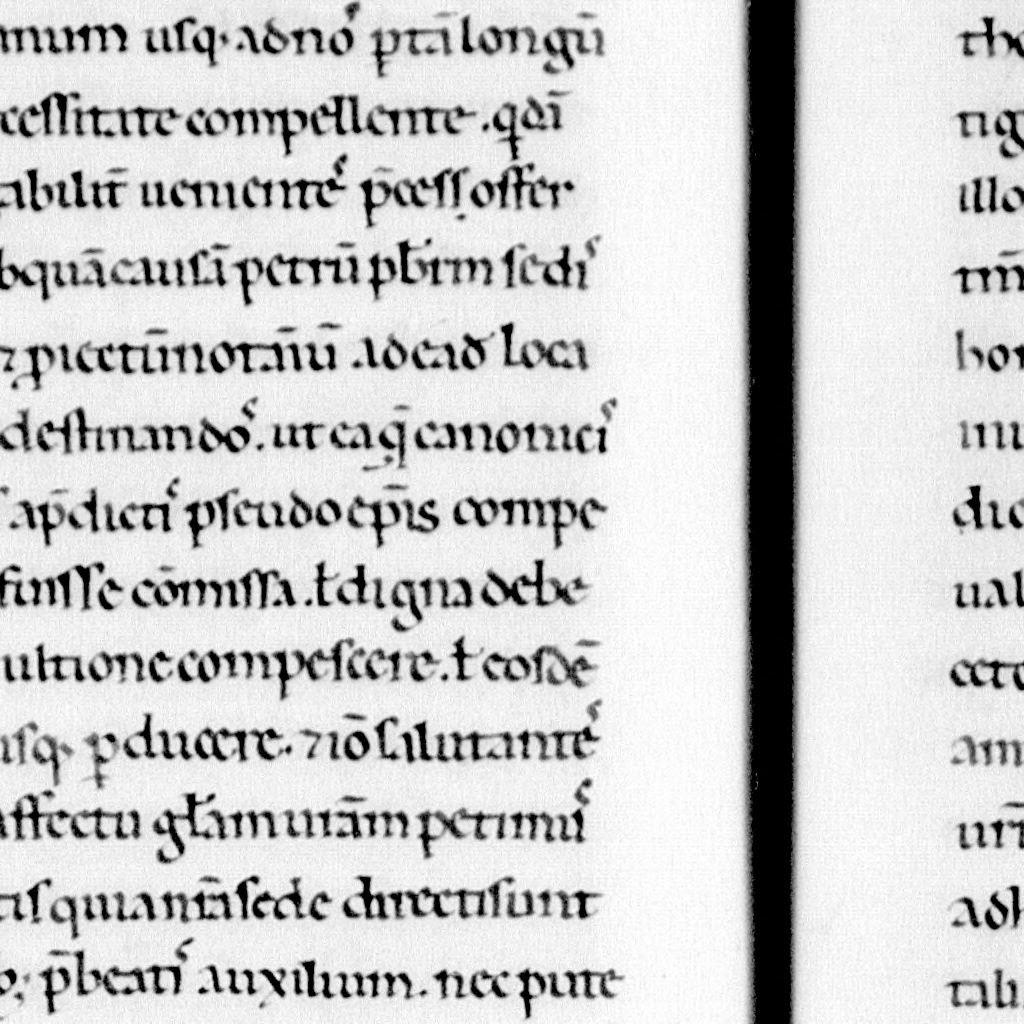 mum usq; ad nos ptā longū
cessitate compellente. q̄dā
abilit̄ uenientes p̄cess; offer
bquā causā petrū pbr̄m sedis
⁊ picetū notariū ad ead loca
destinandos. ut ea q̄ canonicis
ap̄dictis pseudo ep̄is compe
fuisse cōmissa. ł digna debe
ultione compescere. ł eosdē
usq; pducere. ⁊ iō salutantes
affectu gła̅m urā̅m petimus
tis qui a nr̄a sede directi sunt
b; p̄beatis auxilium. nec pute
tig
illo
tm̄
bor
mu
dic
ual
cete
am
urī
adh
tali